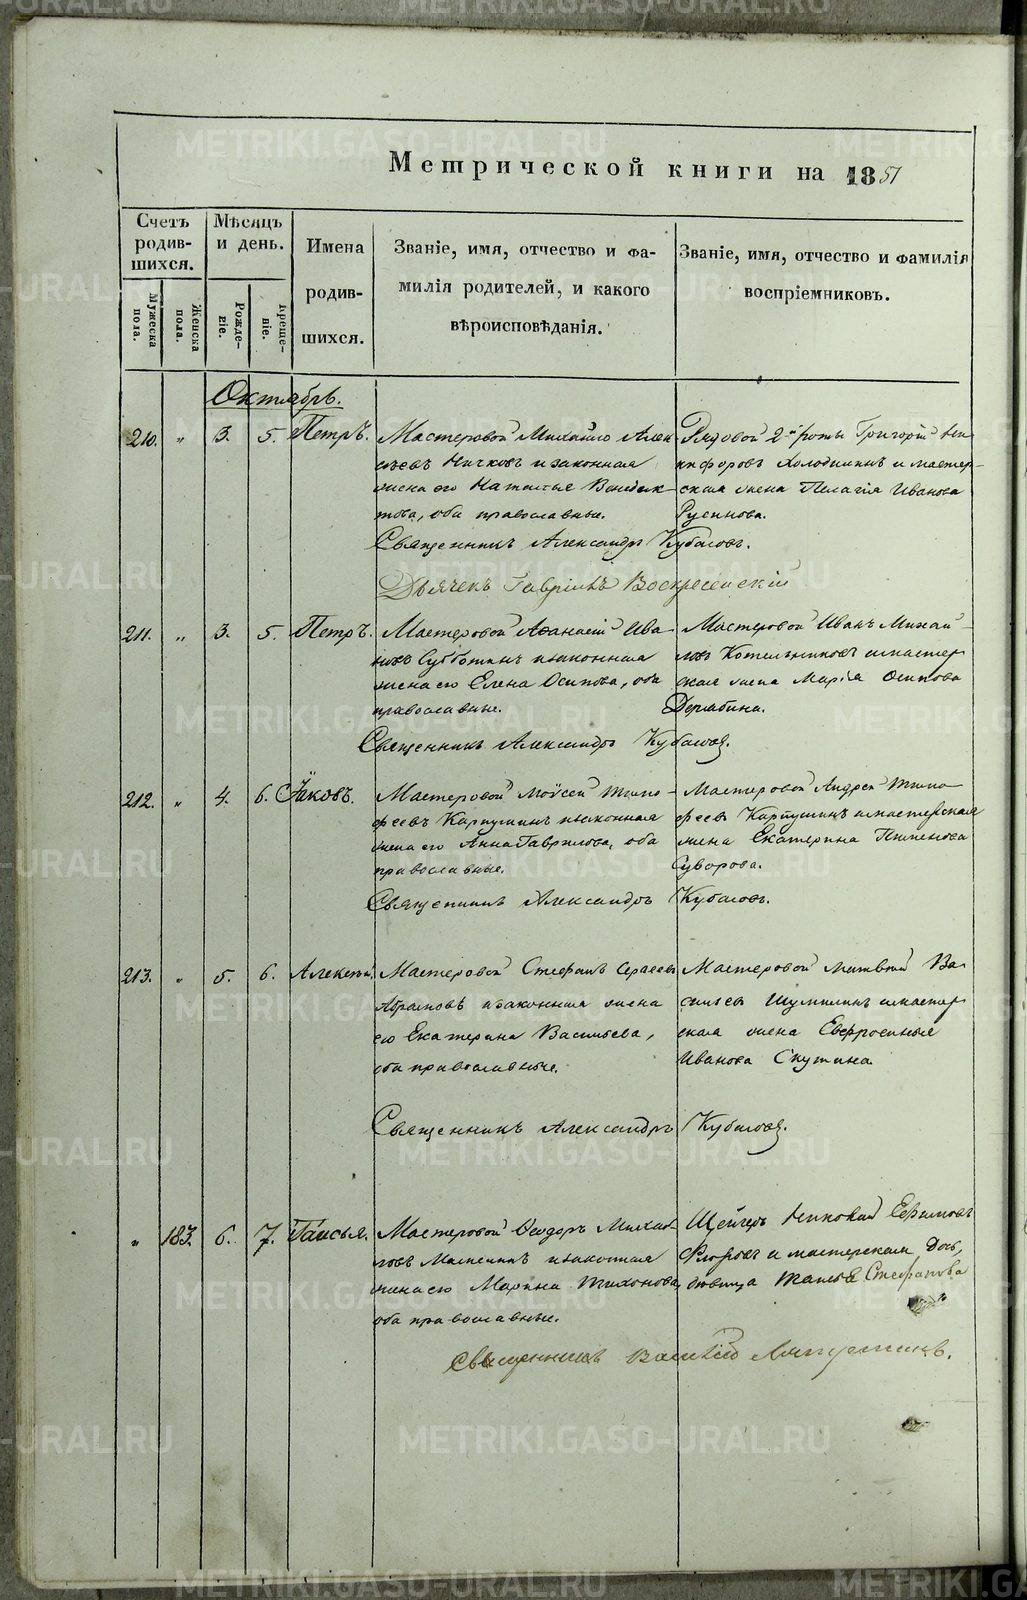 Метрической книги на 1851
Счетъ родив-шихся.
Мужеска пола.
Женска пола.
Мѣсяцъ и день.
Рожде-ніе.
Креще-ніе.
Имена родив-шихся.
Званіе, имя, отчество и фа-
милія родителей, и какого
вѣроисповѣданія.
Званіе, имя, отчество и фамилія
воспріемниковъ.
Октябрь.
210. " 3. 5. Петръ.
Мастеровой Михайло Алек
сѣевъ Ничковъ и законная
жена его Наталья Венедик
това, оба православные.
Рядовой 2й роты Григорій Ни
кифоровъ Холодилинъ и мастер-
ская жена Пелагія Иванова
Русинова.
Священникъ Александръ Кубасовъ.
Дьячекъ Гавріилъ Воскресенскій
211. " 3. 5. Петръ.
Мастеровой Аѳанасій Ива
новъ Субботинъ и законная
жена его Елена Осипова, оба
православные.
Мастеровой Иванъ Михай-
ловъ Котельниковъ и мастер
ская жена Марія Осипова
Дерябина.
Священникъ Александръ Кубасовъ.
212. " 4. 6. Іаковъ.
Мастеровой Моѵсей Тимо-
феевъ Карпушинъ и законная
жена его Анна Гаврилова, оба
православные.
Мастеровой Андрей Тимо-
феевъ Карпушинъ и мастерская
жена Екатерина Пименова
Суворова.
Священникъ Александръ Кубасовъ.
213. " 5. 6. Алексѣй.
Мастеровой Стефанъ Сергеевъ
Абрамовъ и законная жена
его Екатерина Васильева,
оба православные.
Мастеровой Матвѣй Ва-
сильевъ Шумилинъ и мастер
ская жена Евфросинья
Иванова Скутина
Священникъ Александръ Кубасовъ.
" 183. 6. 7. Таисья.
Мастеровой Ѳеодоръ Михай
ловъ и законная
жена его Марина Тихонова,
оба православные.
Щейгеръ Николай Ефимовъ
Фроловъ и мастерская дочь,
дѣвица Таисья Стефанова
Священникъ Василій
METRIKI.GASO-URAL.RU